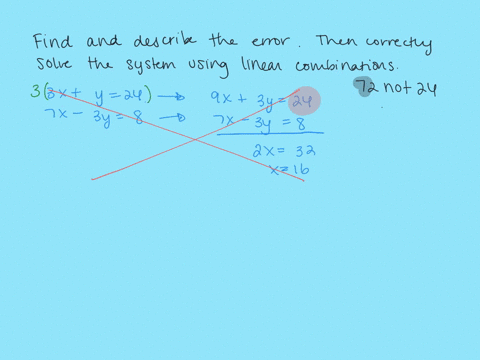 Find and describe the error. Then correctly
solve the system using linear combinations.
3(3x + y = 24) → 9x + 3y = 24
7x - 3y = 8 → 7x - 3y = 8
2x = 32
x = 16
72 not 24